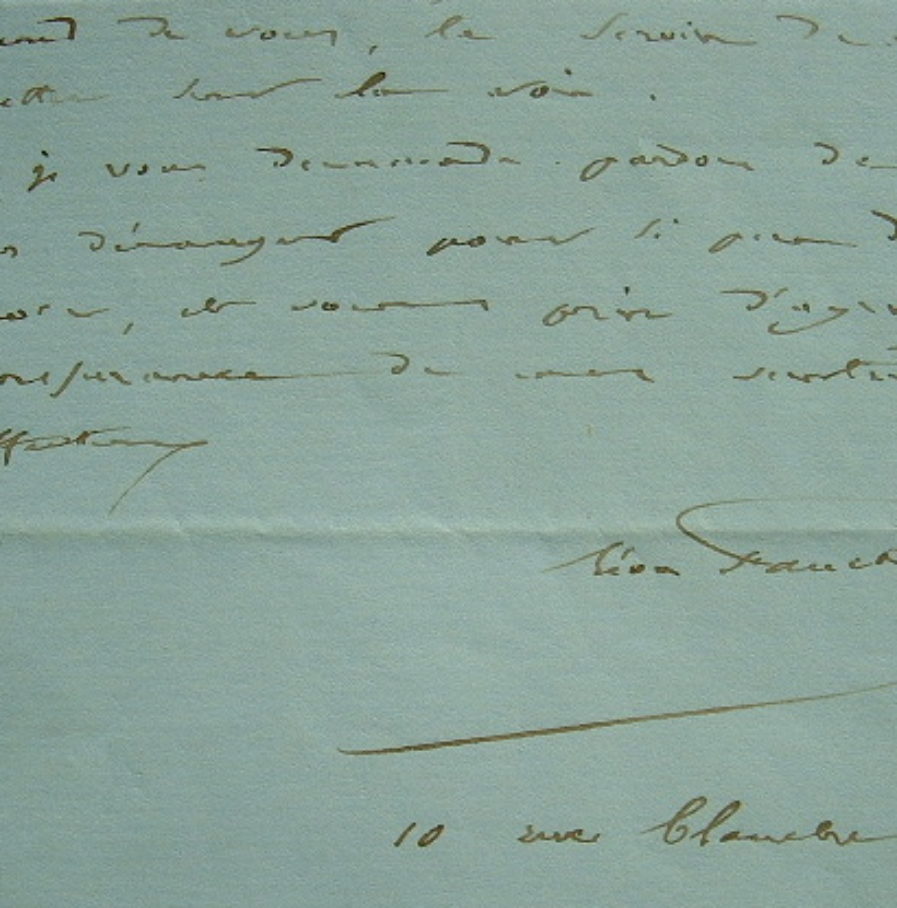 de vous, le service de
mettre sur la voie.
je vous demande pardon de
dérangeant pour si peu d
chose, et vous prie d'agré
assurance de mes sentim
affectueux
Léon Fauch
10 rue Blanche